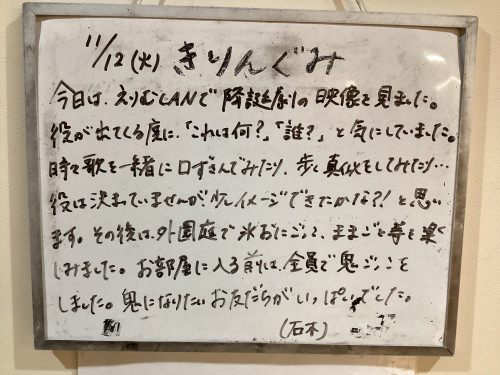 11/12(火) きりんぐみ
今日は、えりむLANで降誕劇の映像を見ました。
役が出てくる度に、「これは何?」「誰?」と気にしていました。
時々歌を一緒に口ずさんでみたり、歩く真似をしてみたり…
役は決まっていませんが少しイメージできたかな?!と思い
ます。その後は、外園庭で氷おにごっこ、ままごと等を楽
しみました。お部屋に入る前は、全員で鬼ごっこを
しました。鬼になりたいお友だちがいっぱいでした。
(石木)